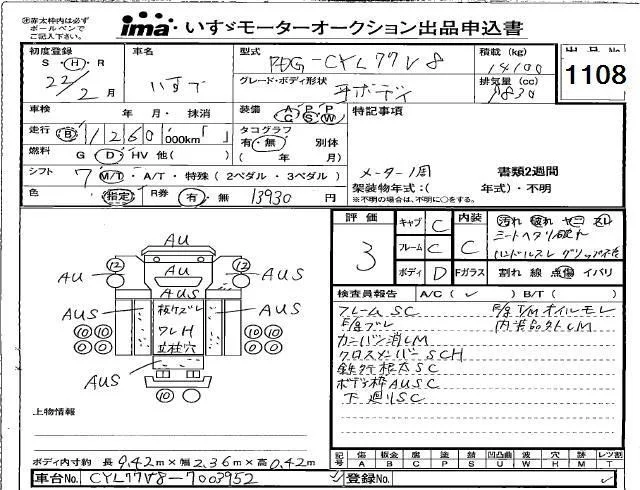 ※赤太枠内は必ず
ボールペンで
ご記入下さい。
ima いすゞモーターオークション出品申込書
初度登録 車名 型式 積載 (kg) 出品No.
S・H・R いすゞ PDG-CYL77V8 14100 1108
22/2月 グレード・ボディ形状 排気量 (cc)
平ボディ 9830
車検 年・月・抹消 装備 A/C P/S P/W 特記事項
走行 1260 000km「 」 タコグラフ
有・無 別体
燃料 G D HV 他( ) ( 年 月) メーター1周 書類2週間
シフト 7 M/T・A/T・特殊 (2ペダル・3ペダル) 架装物年式:( 年式)・不明
色 指定 R券 有・無 13930円 ※不明の場合は、不明に○をする。
評価 キャブ C 内装 汚れ 破れ ヤニ スレ
3 フレーム C C シートヘタリ破れ
ボディ D Fガラス 割れ 線 点傷 イバリ
検査員報告 A/C( ✓ ) B/T( )
フレームSC
T/Mオイルモレ
カバー消しM
クロスメンバーSCH
鉄板根太SC
ボディ枠AUSC
下廻りSC
AU
AU AU AU
AUS
AUS AUS
板ケズレ
ウレH
立柱穴
AUS AUS
12 12
10 10 10 10
0 0 0 0
10
上物情報
ボディ内寸約 長 9.42m×幅 2.36m×高 0.42m
記号 傷 板金 腐 塗 錆 凹凸曲 W 穴 跡 レツ割
A B C P S U W H M T
車台No. CYL77V8-7003952 登録No.